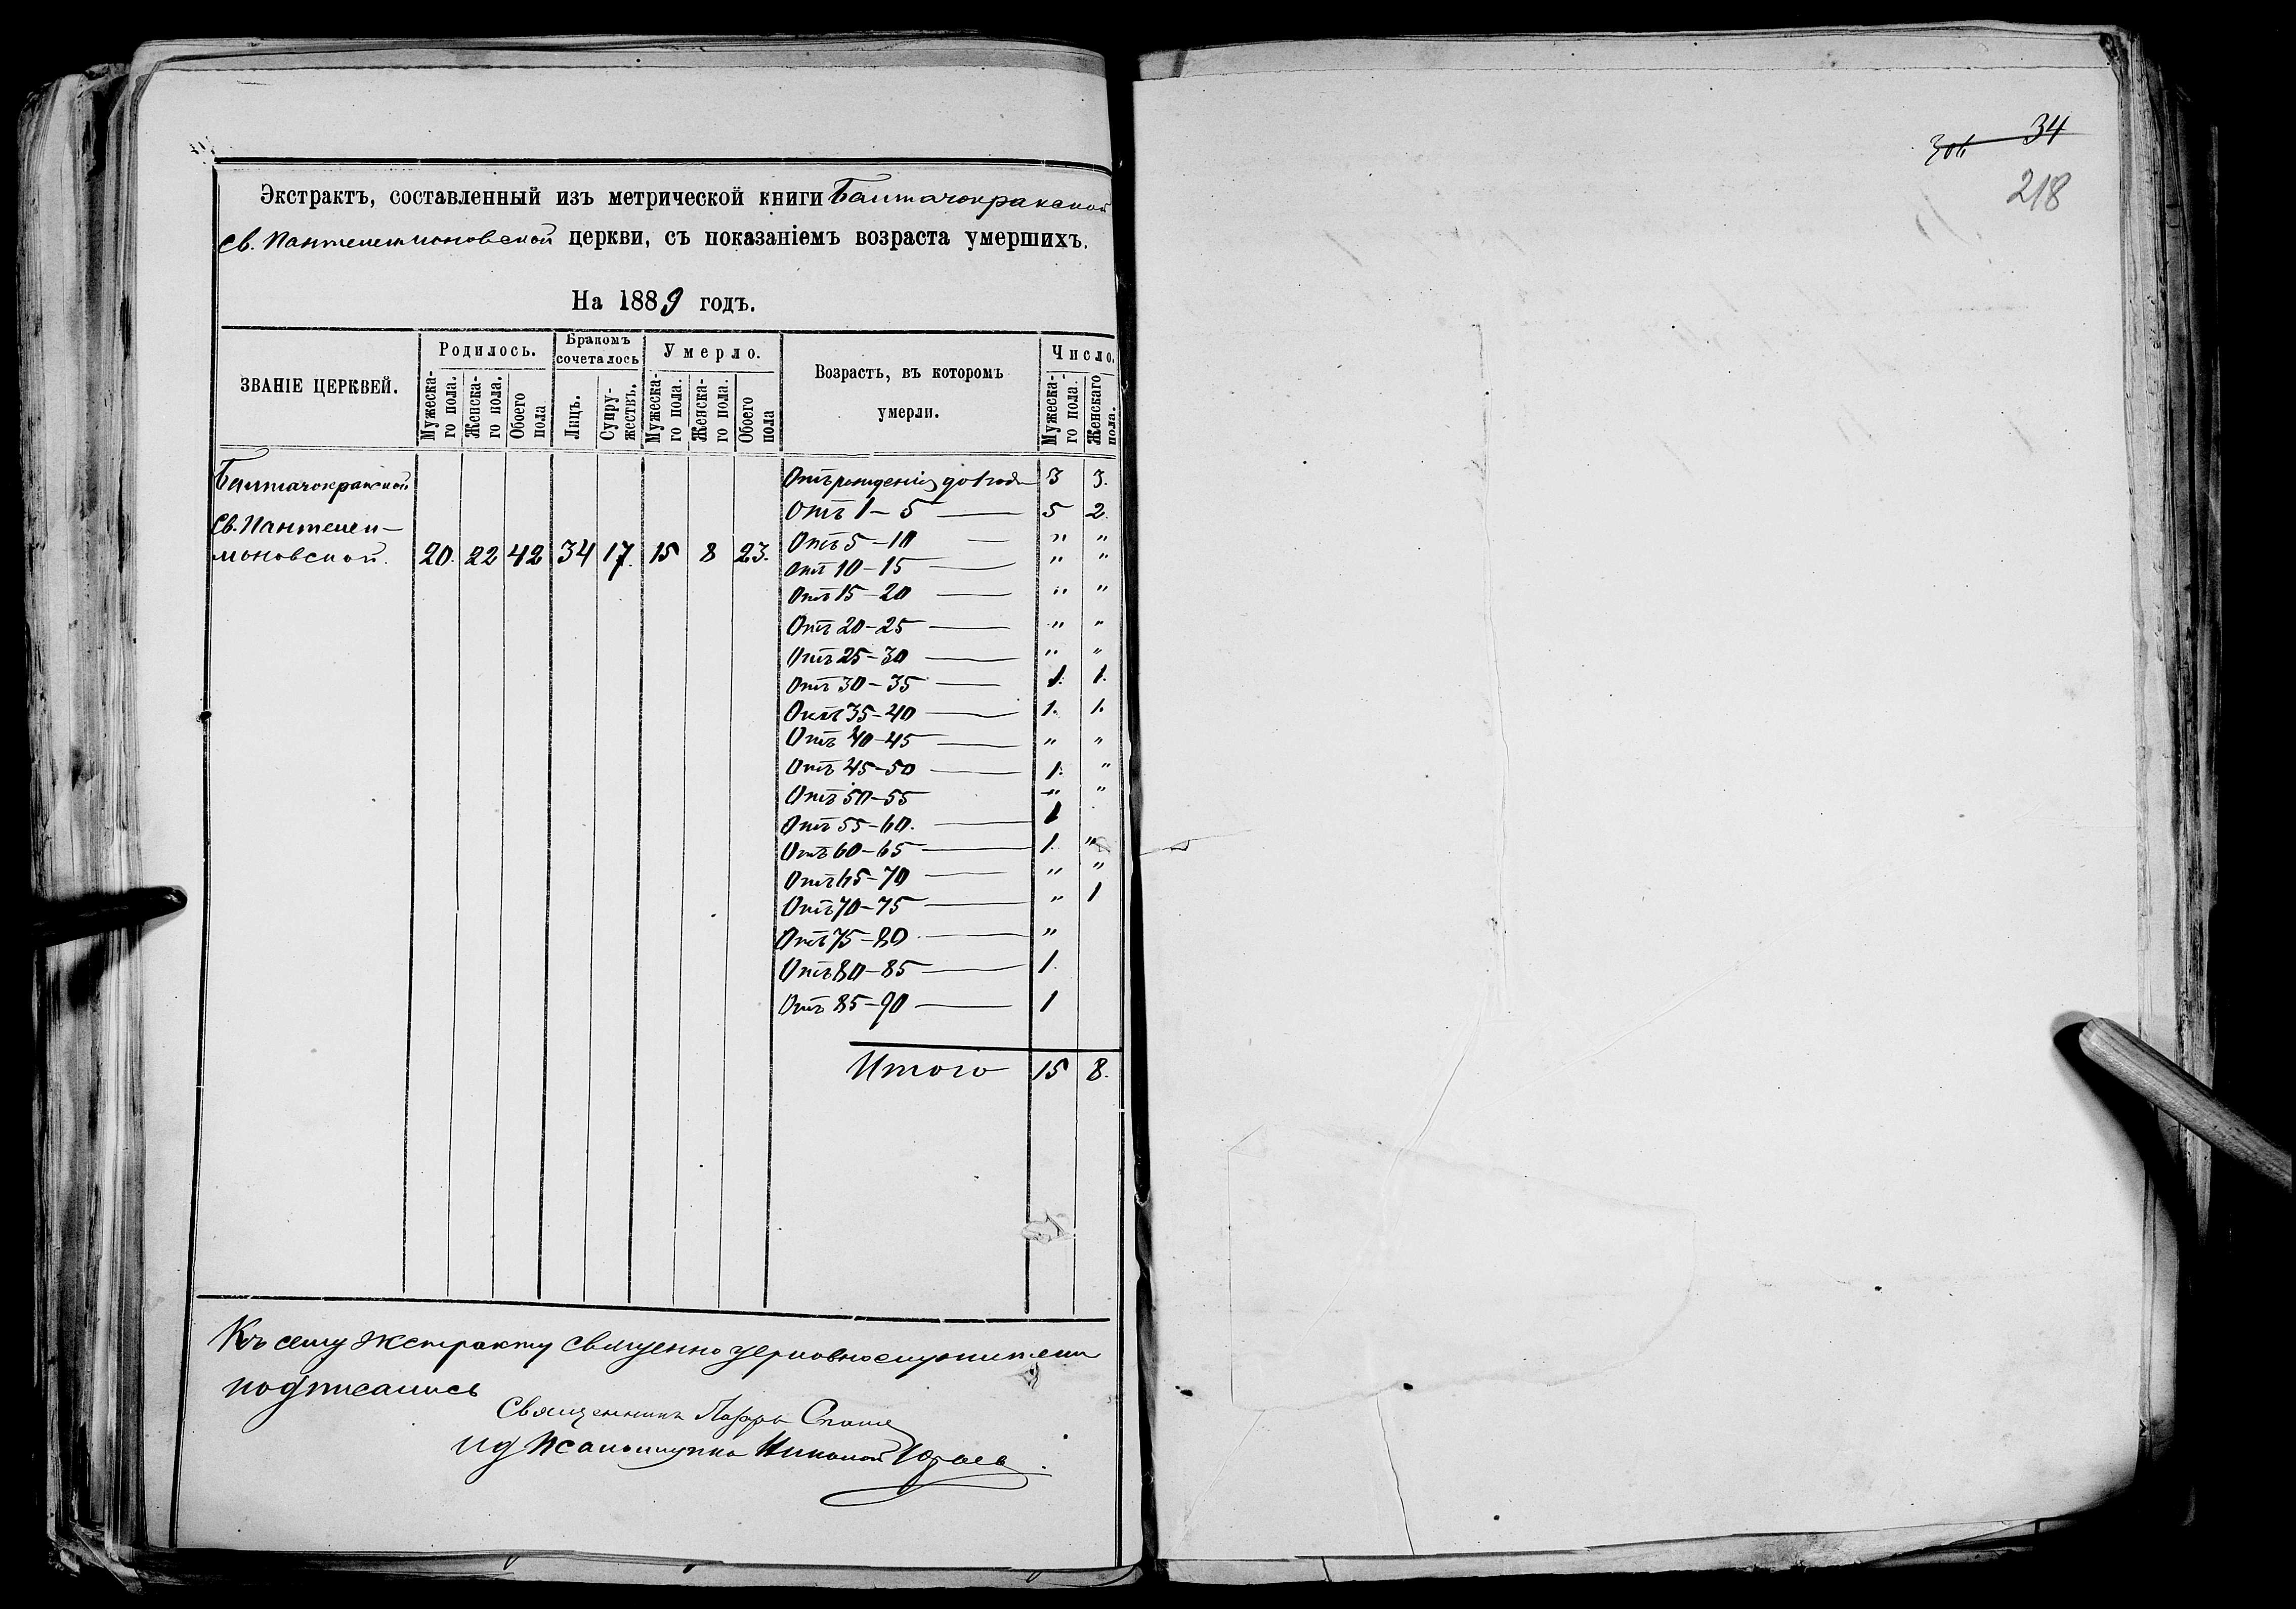 Экстрактъ, составленный изъ метрической книги Балтачокракской
св. Пантелеимоновской церкви, съ показаніемъ возраста умершихъ.
На 1889 годъ.
ЗВАНІЕ ЦЕРКВЕЙ.
Родилось.
Бракомъ сочеталось
Умерло.
Возрастъ, въ которомъ умерли.
Число.
Мужеска-го пола.
Женска-го пола.
Обоего пола
Лицъ.
Супру-жествъ.
Мужеска-го пола.
Женска-го пола.
Обоего пола
Мужеска-го пола.
Женскаго пола.
Балтачокракской
Св. Пантелеи-
моновской. 20. 22 42 34 17. 15 8 23.
Отъ рожденія до 1 года 3 3.
Отъ 1 – 5 — 5 2.
Отъ 5 – 10 — " "
Отъ 10 – 15 — " "
Отъ 15 – 20 — " "
Отъ 20 – 25 — " "
Отъ 25 – 30 — " "
Отъ 30 – 35 — 1. 1.
Отъ 35 – 40 — 1. 1.
Отъ 40 – 45 — " "
Отъ 45 – 50 — 1. "
Отъ 50 – 55 " "
Отъ 55 – 60. — 1
Отъ 60 – 65 — 1. "
Отъ 65 – 70 — " "
Отъ 70 – 75 — " 1
Отъ 75 – 80 — "
Отъ 80 – 85 — 1.
Отъ 85 – 90 — 1
Итого 15 8.
Къ сему экстракту священно церковнослужители
подписались
Священникъ Лазарь
И д Псаломщика Николай
34
218